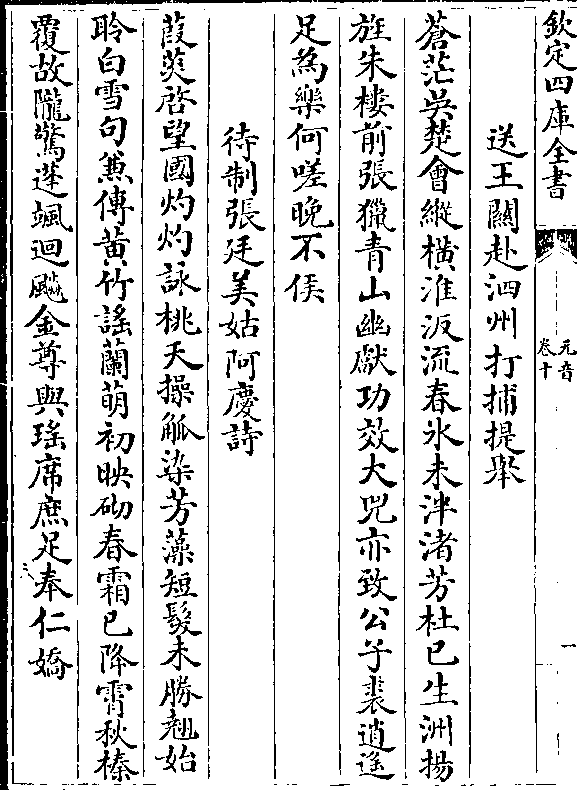 欽定四庫全書
元音
卷十
一
送王闗赴泗州打捕提舉
蒼茫吳楚會縱横淮汳流春氷未泮渚芳杜已生洲揚
旌朱樓前張獵青山幽獻功效大兕亦致公子裘逍遥
足為樂何嗟晚不侯
待制張廷美姑阿慶詩
葭莢啓望國灼灼詠桃夭操觚染芳藻短髮未勝翹始
聆白雪句兼傳黄竹謡蘭萌初映砌春霜已降霄秋榛
覆故隴驚蓬颯迴飈金尊與瑶席庶足奉仁嬌